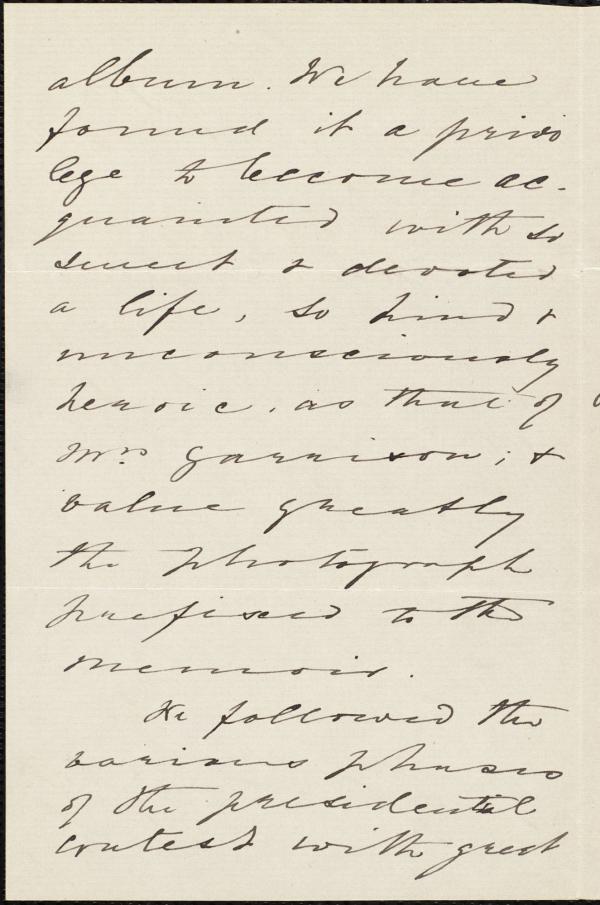 album. We have
found it a privi
lege to become ac-
quainted with so
sweet & devoted
a life, so kind &
unconsciously
heroic, as that of
Mrs Garrison; &
value greatly
the photograph
prefixed to the
memoir.
We followed the
various phases
of the presidential
contest with great